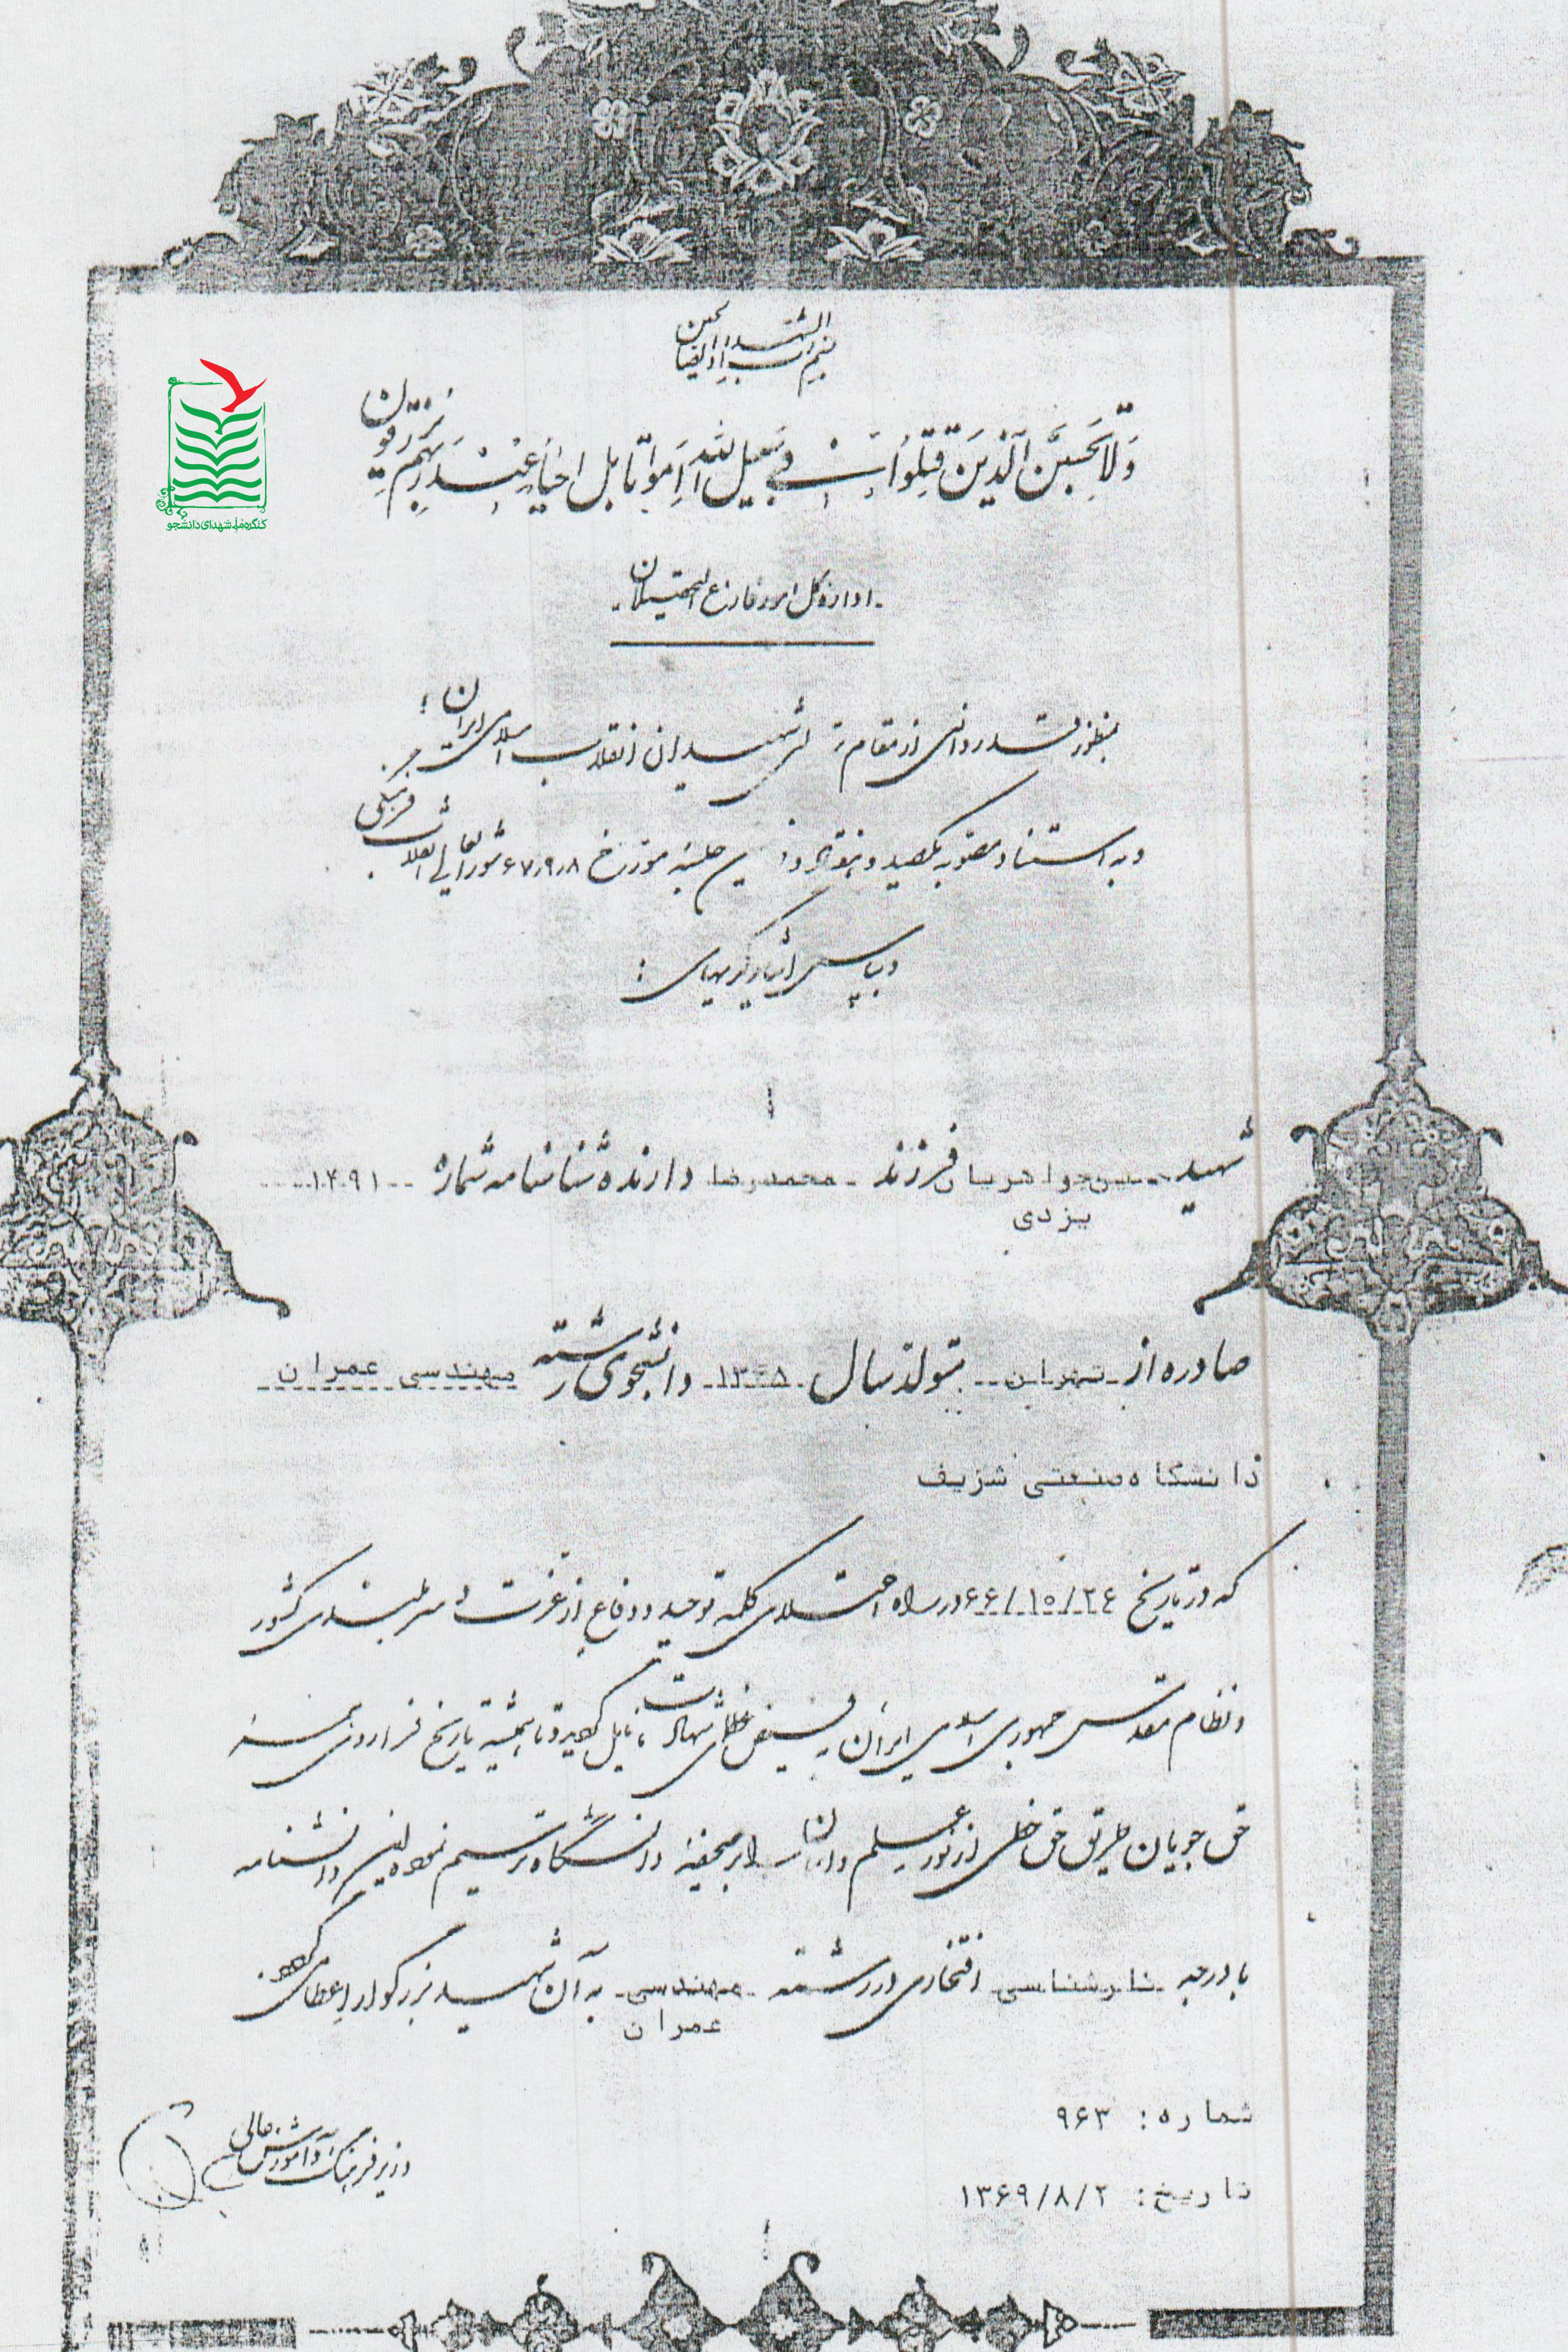 بسم رب الشهداء والصدیقین
وَلا تَحْسَبَنَّ الَّذینَ قُتِلُوا فی سَبیلِ اللهِ اَمْواتاً بَلْ اَحْیاءٌ عِنْدَ رَبِّهِمْ یُرْزَقُونَ
کنگره ملی شهدای دانشجو
اداره کل امور فارغ التحصیلان
بمنظور قدردانی از مقام شهیدان انقلاب اسلامی ایران؛
و به استناد مصوبه یکصد و جلسه مورخ ۶۷/۹/۸ شورایعالی انقلاب فرهنگی
و بپاس ایثارگریهای :
شهید حسن جواهریان یزدی فرزند محمدرضا دارنده شناسنامه شماره ۱۴۹۱
صادره از تهران متولد سال دانشجوی رشته مهندسی عمران
دانشگاه صنعتی شریف
که در تاریخ ۶۶/۱۰/۲۴ در راه اعتلای کلمه توحید و دفاع از عزت و سربلندی کشور
و نظام مقدس جمهوری اسلامی ایران به فیض عظمای شهادت نایل گردید و تا همیشه تاریخ فراروی همه
حق جویان طریق حق خطی از نور علم و ایمان را بر صحیفه دانشگاه ترسیم نموده این دانشنامه
با درجه کارشناسی افتخاری در رشته مهندسی عمران به آن شهید بزرگوار اعطا می گردد.
شماره: ۹۶۳
وزیر فرهنگ و آموزش عالی
تاریخ: ۱۳۶۹/۸/۲